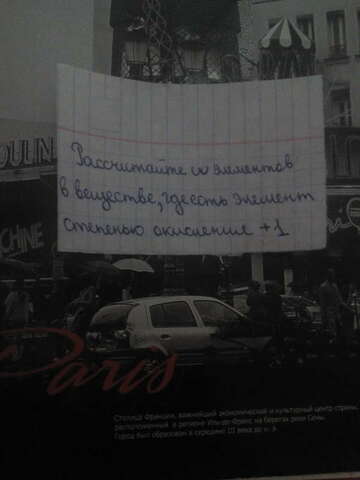 OULIN
Рассчитайте ω элементов
в веществе, где есть элемент
степенью окисления +1
CHINE
Paris
Столица Франции, важнейший экономический и культурный центр страны,
расположенный в регионе Иль-де-Франс на берегах реки Сены.
Город был образован в середине III века до н. э.